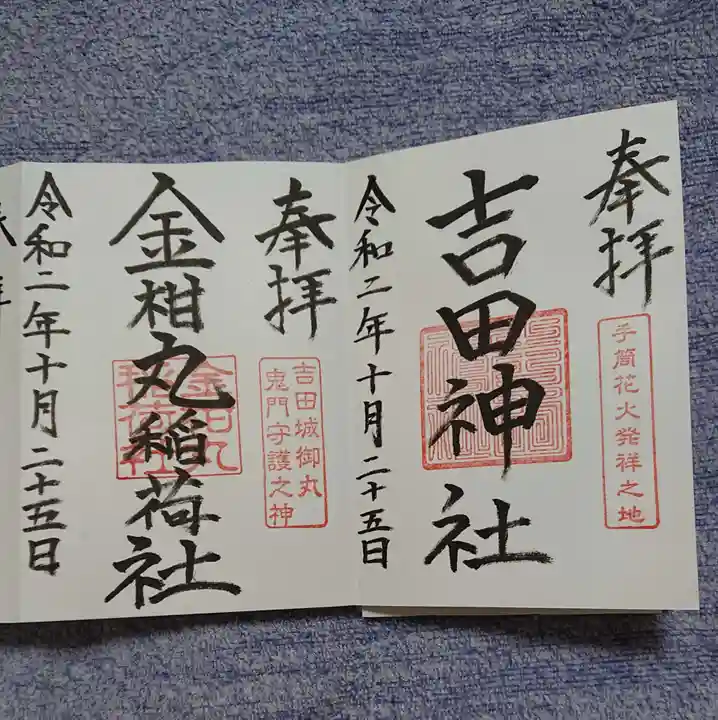 奉拝
手筒花火発祥之地
吉田神社
令和二年十月二十五日
奉拝
吉田城御丸
鬼門守護之神
金柑丸稲荷社
令和二年十月二十五日
拝